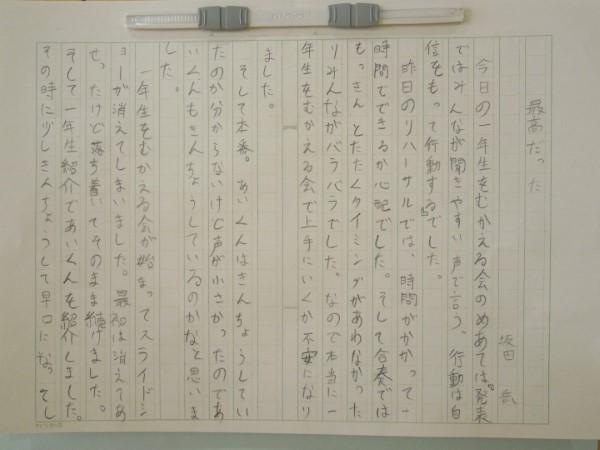 最高だった
坂田
今日の一年生をむかえる会のめあては、発表
ではみんなが聞きやすい声で言う。行動は自
信をもって行動するでした。
昨日のリハーサルでは、時間がかかって一
時間でできるか心配でした。そして合奏では
もっきんとたたくタイミングがあわなかった
りみんながバラバラでした。なので本当に一
年生をむかえる会で上手にいくか不安になり
ました。
そして本番。あいくんはきんちょうしてい
たのか分からないけど声が小さかったのであ
いくんもきんちょうしているのかなと思いま
した。
一年生をむかえる会が始まってスライドシ
ョーが消えてしまいました。最初は消えてあ
せったけど落ち着いてそのまま続けました。
そして一年生紹介であいくんを紹介しました。
その時に少しきんちょうして早口になってし